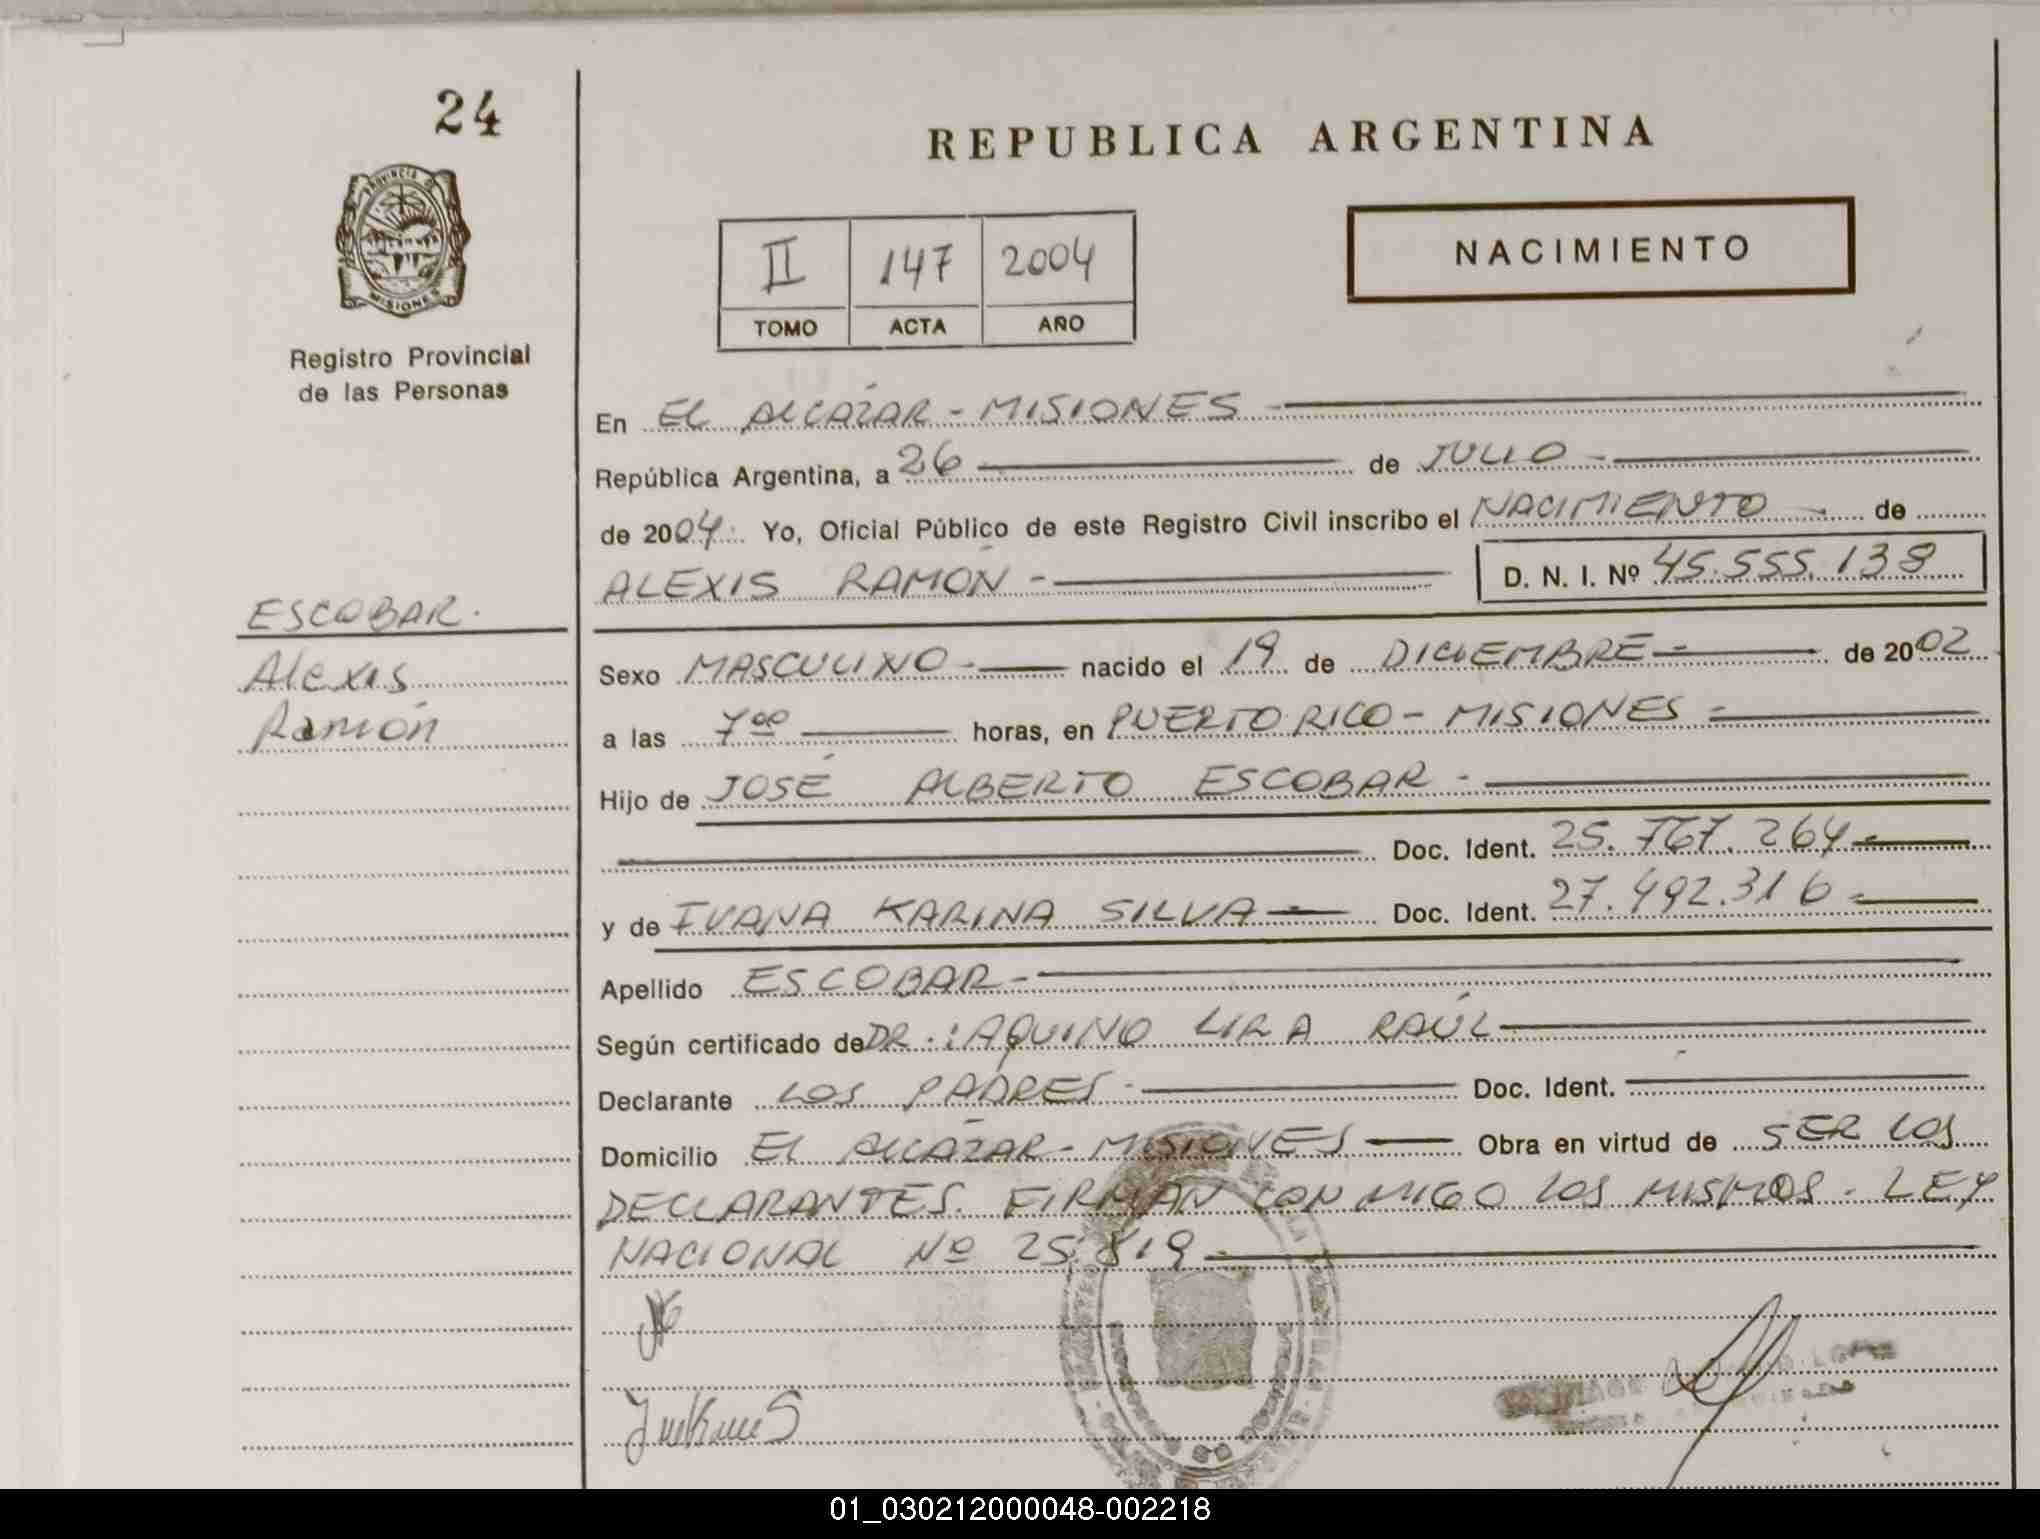 24
PROVINCIA DE
MISIONES
Registro Provincial
de las Personas
ESCOBAR.
Alexis
Ramón
REPUBLICA ARGENTINA
NACIMIENTO
II 147 2004
TOMO ACTA AÑO
En EL ALCÁZAR - MISIONES
República Argentina, a 26 de JULIO
de 2004 Yo, Oficial Público de este Registro Civil inscribo el NACIMIENTO de
ALEXIS RAMÓN - D. N. I. Nº 45.555.138
Sexo MASCULINO - nacido el 19 de DICIEMBRE - de 2002
a las 7ºº horas, en PUERTO RICO - MISIONES -
Hijo de JOSÉ ALBERTO ESCOBAR -
Doc. Ident. 25.767.264
y de IVANA KARINA SILVA Doc. Ident. 27.492.316
Apellido ESCOBAR -
Según certificado de DR.: AQUINO LIRA RAÚL
Declarante LOS PADRES - Doc. Ident.
Domicilio EL ALCÁZAR - MISIONES Obra en virtud de SER LOS
DECLARANTES. FIRMAN CONMIGO LOS MISMOS - LEY
NACIONAL Nº 25.819 -
01_030212000048-002218